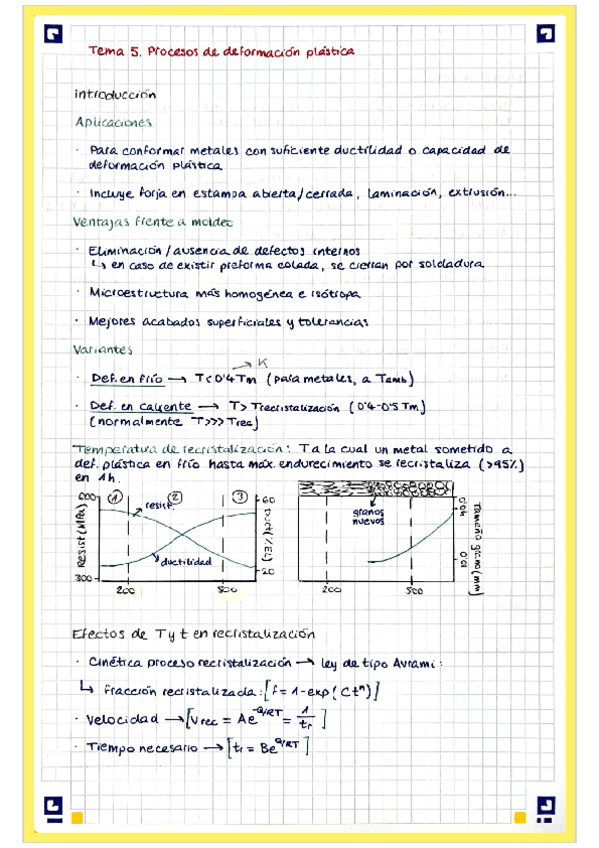 Tema 5. Procesos de deformación plástica
introducción
Aplicaciones
· Para conformar metales con suficiente ductilidad o capacidad de
deformación plástica
· Incluye forja en estampa abierta/cerrada, laminación, extrusión...
Ventajas frente a moldeo
· Eliminación/ausencia de defectos internos
↳ en caso de existir preforma colada, se cierran por soldadura
· Microestructura más homogénea e isótropa
· Mejores acabados superficiales y tolerancias
Variantes
→ K
· Def. en frío → T<0'4 Tm (para metales, a Tamb)
· Def. en caliente → T> Trecristalización (0'4-0'5 Tm)
(normalmente T>>> Trec)
Temperatura de recristalización: T a la cual un metal sometido a
def. plástica en frío hasta máx. endurecimiento se recristaliza (>95%)
en 1h.
600 1 2 3 60
resist.
Resist (MPa)
Duct (% EL)
ductilidad
300 20
200 500
granos
nuevos
0'04
0'01
Tamaño grano (mm)
200 500
Efectos de T y t en recristalización
· Cinética proceso recristalización → ley de tipo Avrami:
↳ fracción recristalizada: [f = 1-exp(Ctⁿ)]
· Velocidad → [Vrec = Ae^-Q/RT = 1/tr]
· Tiempo necesario → [tr = Be^Q/RT]